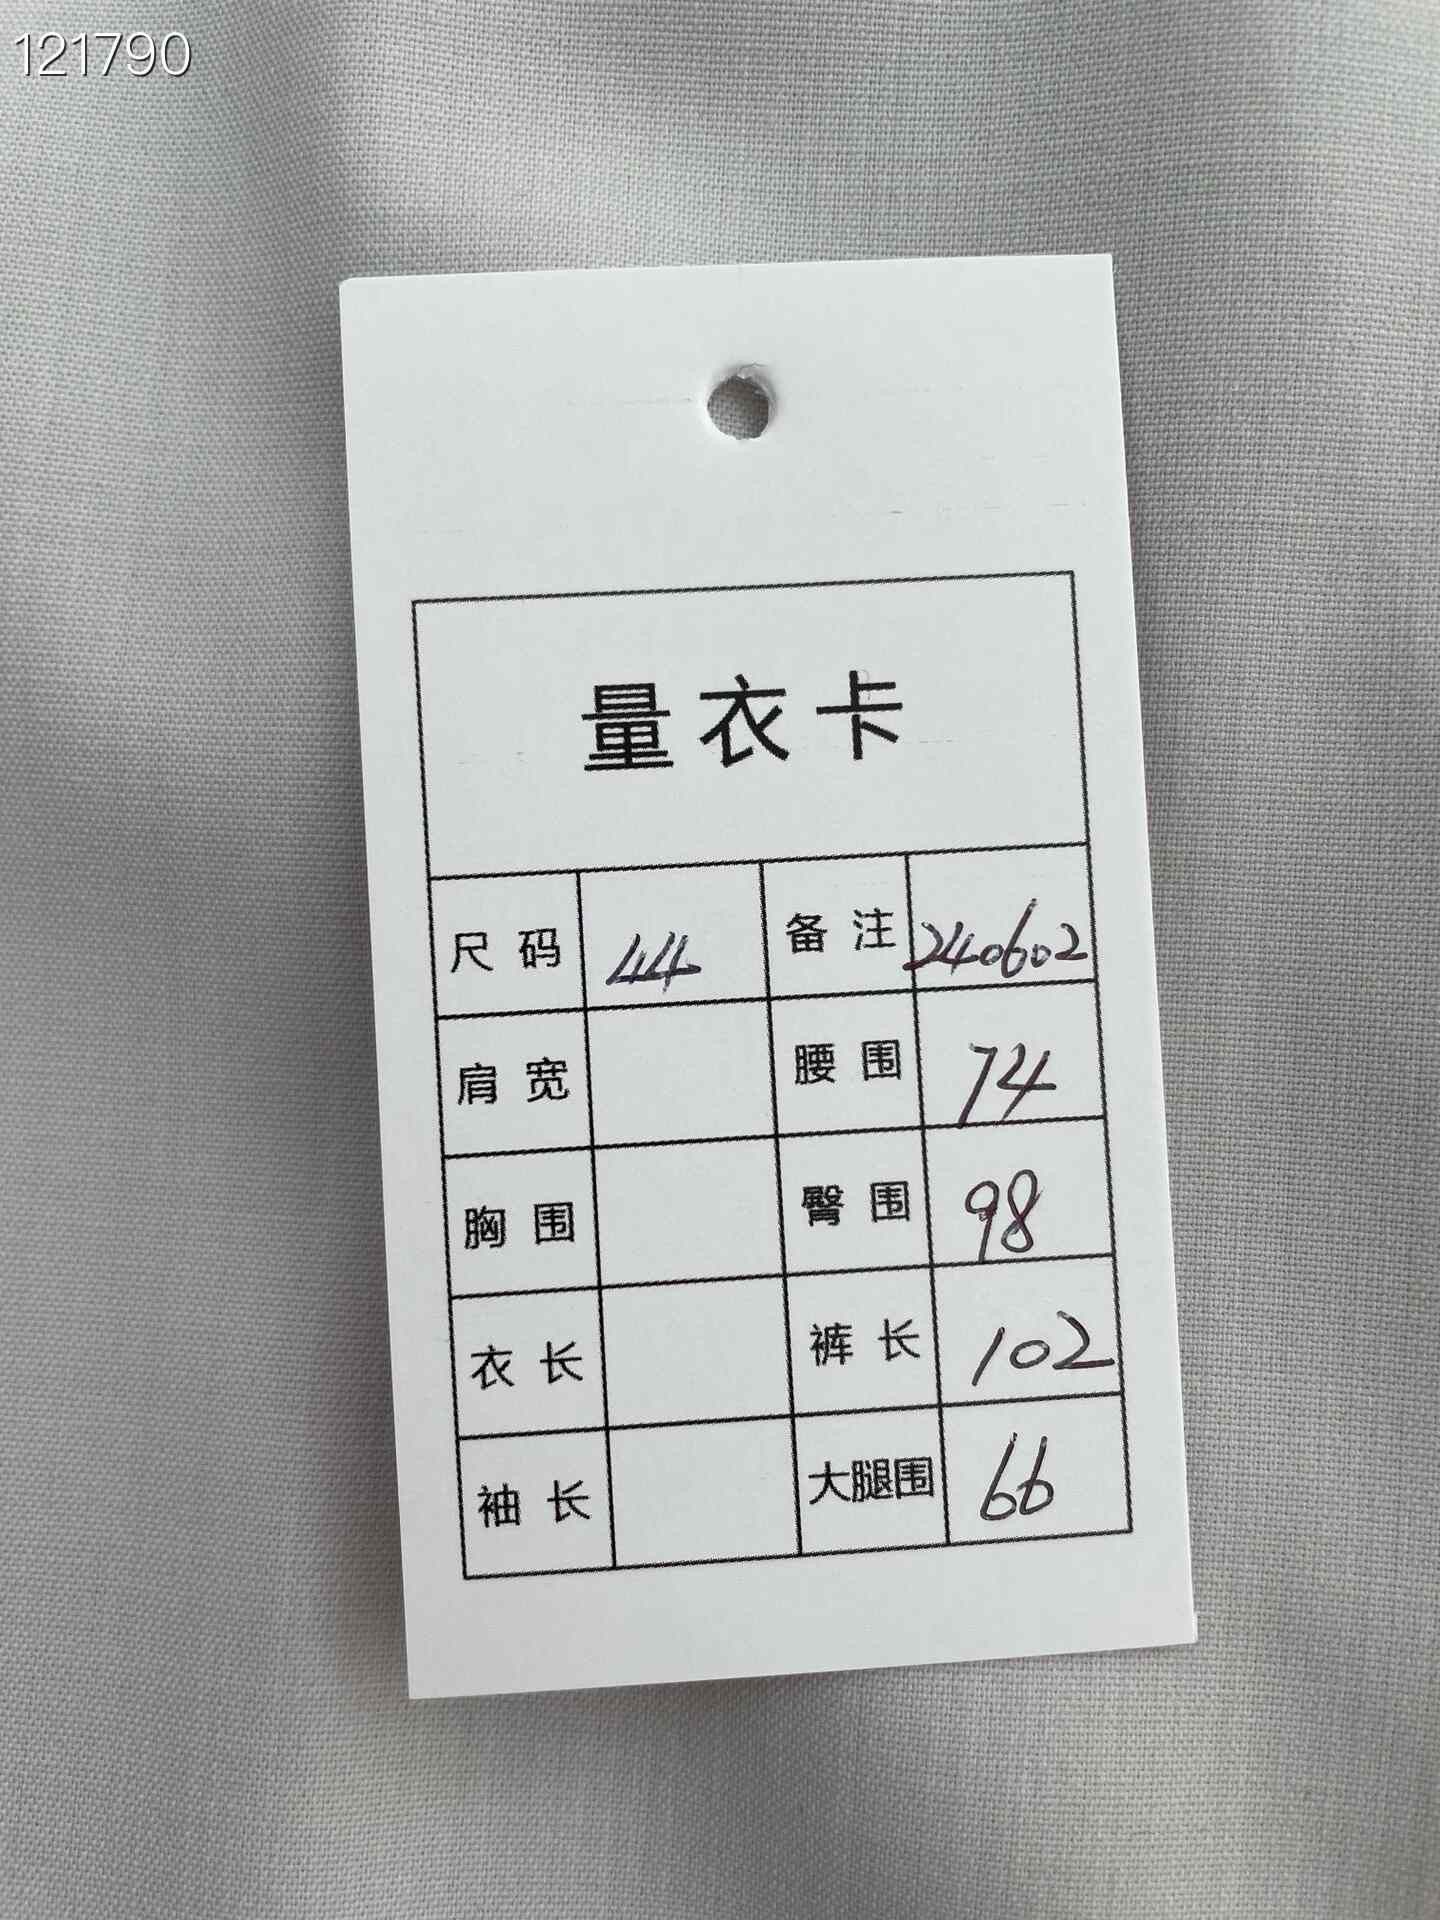 121790
量衣卡
尺码 44 备注 240602
肩宽 腰围 74
胸围 臀围 98
衣长 裤长 102
袖长 大腿围 66